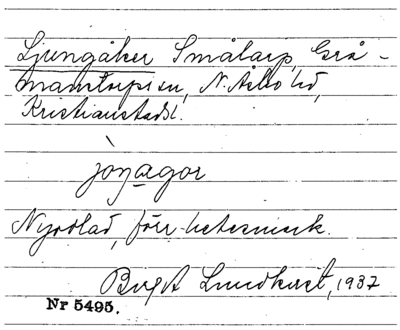 Ljungåker Smålarp, Grå-
manstorps sn, N. Åsbo hd,
Kristianstads l.
jòŋagər
Nyodlad, förr betesmark.
Birgit Lundkvist, 1937
Nr 5495.